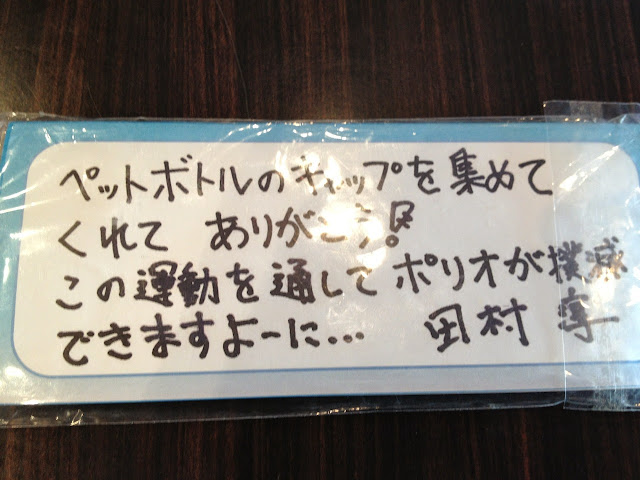 ペットボトルのキャップを集めて
くれて ありがとう!
この運動を通してポリオが撲滅
できますよーに… 田村 淳